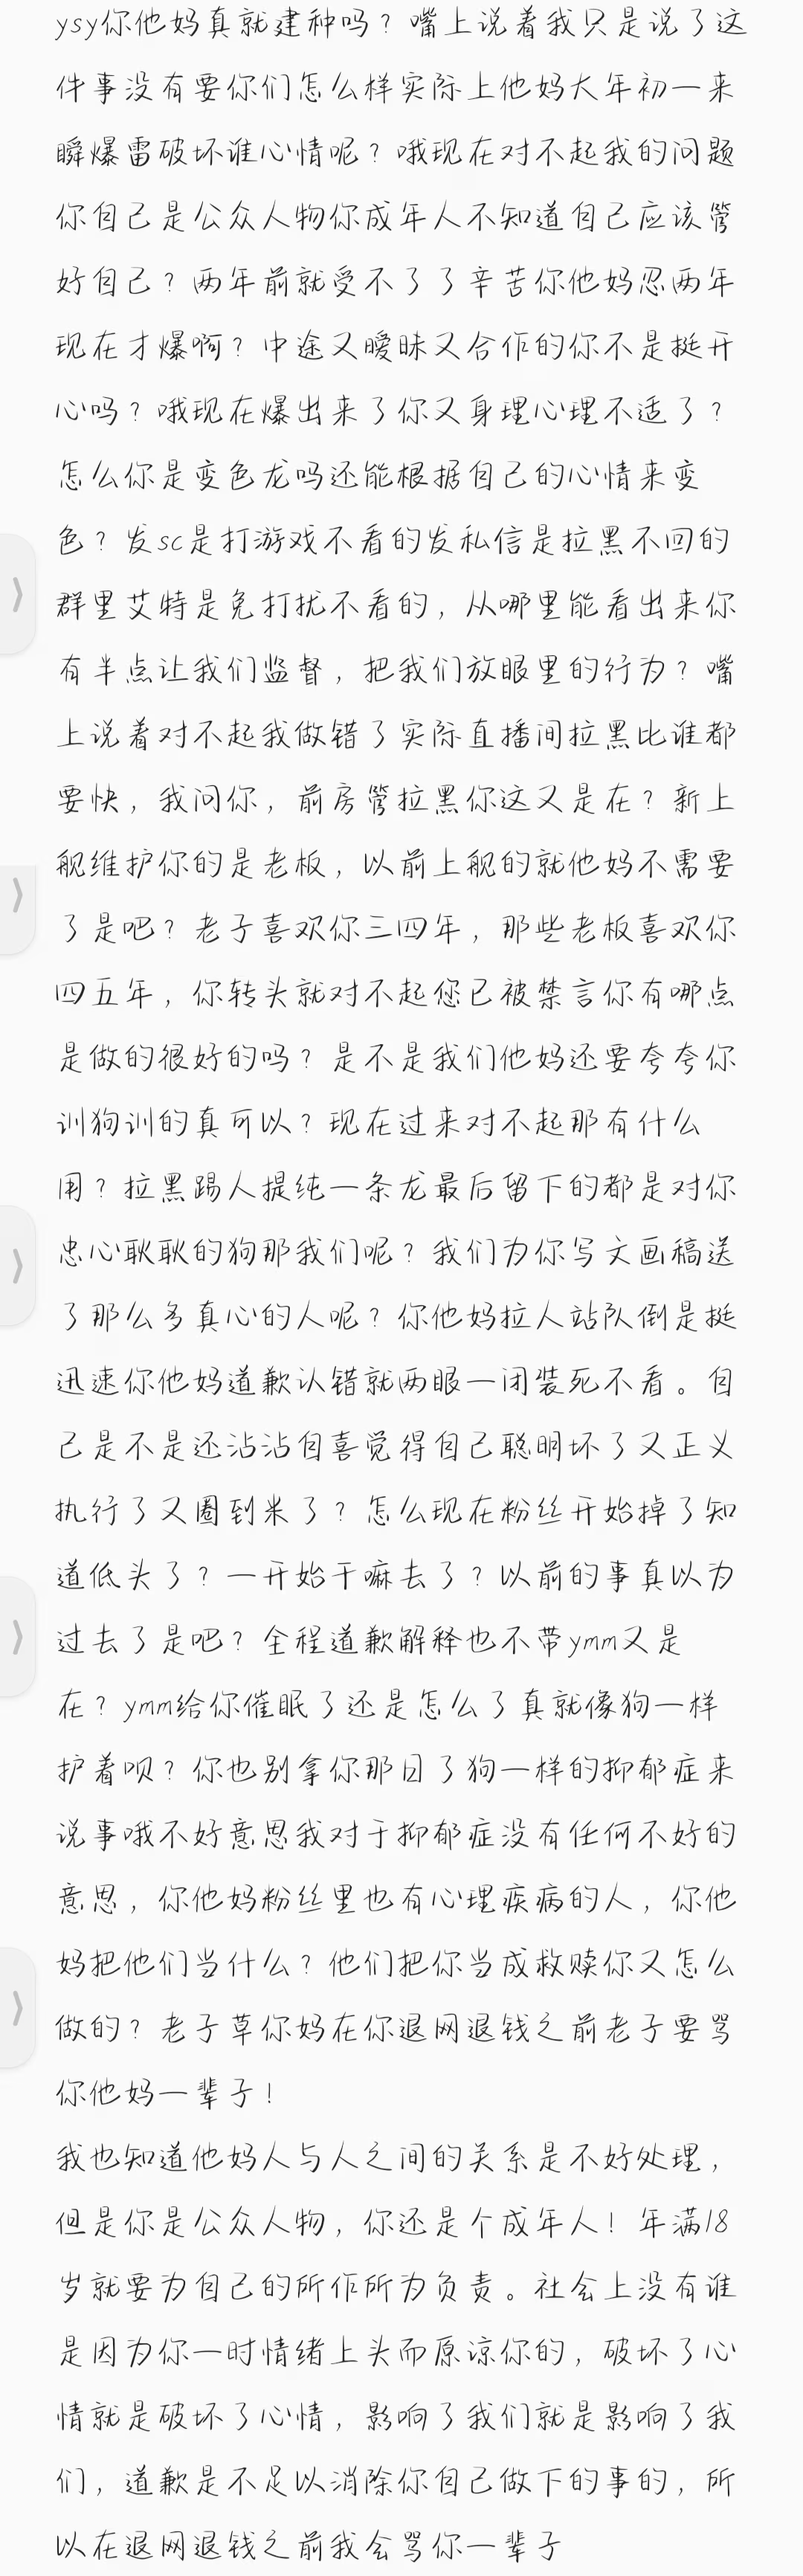 ysy你他妈真就建种吗？嘴上说着我只是说了这
件事没有要你们怎么样实际上他妈大年初一来
瞬爆雷破坏谁心情呢？哦现在对不起我的问题
你自己是公众人物你成年人不知道自己应该管
好自己？两年前就受不了了辛苦你他妈忍两年
现在才爆啊？中途又暧昧又合作的你不是挺开
心吗？哦现在爆出来了你又身理心理不适了？
怎么你是变色龙吗还能根据自己的心情来变
色？发sc是打游戏不看的发私信是拉黑不回的
群里艾特是免打扰不看的，从哪里能看出来你
有半点让我们监督，把我们放眼里的行为？嘴
上说着对不起我做错了实际直播间拉黑比谁都
要快，我问你，前房管拉黑你这又是在？新上
舰维护你的是老板，以前上舰的就他妈不需要
了是吧？老子喜欢你三四年，那些老板喜欢你
四五年，你转头就对不起您已被禁言你有哪点
是做的很好的吗？是不是我们他妈还要夸夸你
训狗训的真可以？现在过来对不起那有什么
用？拉黑踢人提纯一条龙最后留下的都是对你
忠心耿耿的狗那我们呢？我们为你写文画稿送
了那么多真心的人呢？你他妈拉人站队倒是挺
迅速你他妈道歉认错就两眼一闭装死不看。自
己是不是还沾沾自喜觉得自己聪明坏了又正义
执行了又圈到米了？怎么现在粉丝开始掉了知
道低头了？一开始干嘛去了？以前的事真以为
过去了是吧？全程道歉解释也不带ymm又是
在？ymm给你催眠了还是怎么了真就像狗一样
护着呗？你也别拿你那日了狗一样的抑郁症来
说事哦不好意思我对于抑郁症没有任何不好的
意思，你他妈粉丝里也有心理疾病的人，你他
妈把他们当什么？他们把你当成救赎你又怎么
做的？老子草你妈在你退网退钱之前老子要骂
你他妈一辈子！
我也知道他妈人与人之间的关系是不好处理，
但是你是公众人物，你还是个成年人！年满18
岁就要为自己的所作所为负责。社会上没有谁
是因为你一时情绪上头而原谅你的，破坏了心
情就是破坏了心情，影响了我们就是影响了我
们，道歉是不足以消除你自己做下的事的，所
以在退网退钱之前我会骂你一辈子